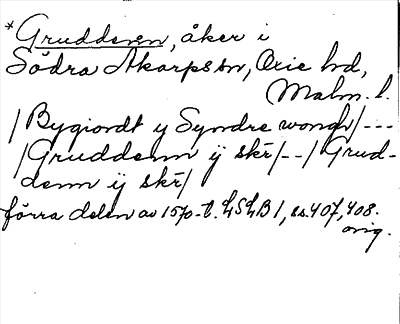 *Gruddenn, åker i
Södra Åkarps sn, Oxie hd,
Malm. l.
/Bygiordt y Syndre wongh/---
/Gruddenn ÿ skr̄/--/Grud-
denn ÿ skr̄/
förra delen av 1570-t. LSLB 1, ss. 407, 408.
orig.